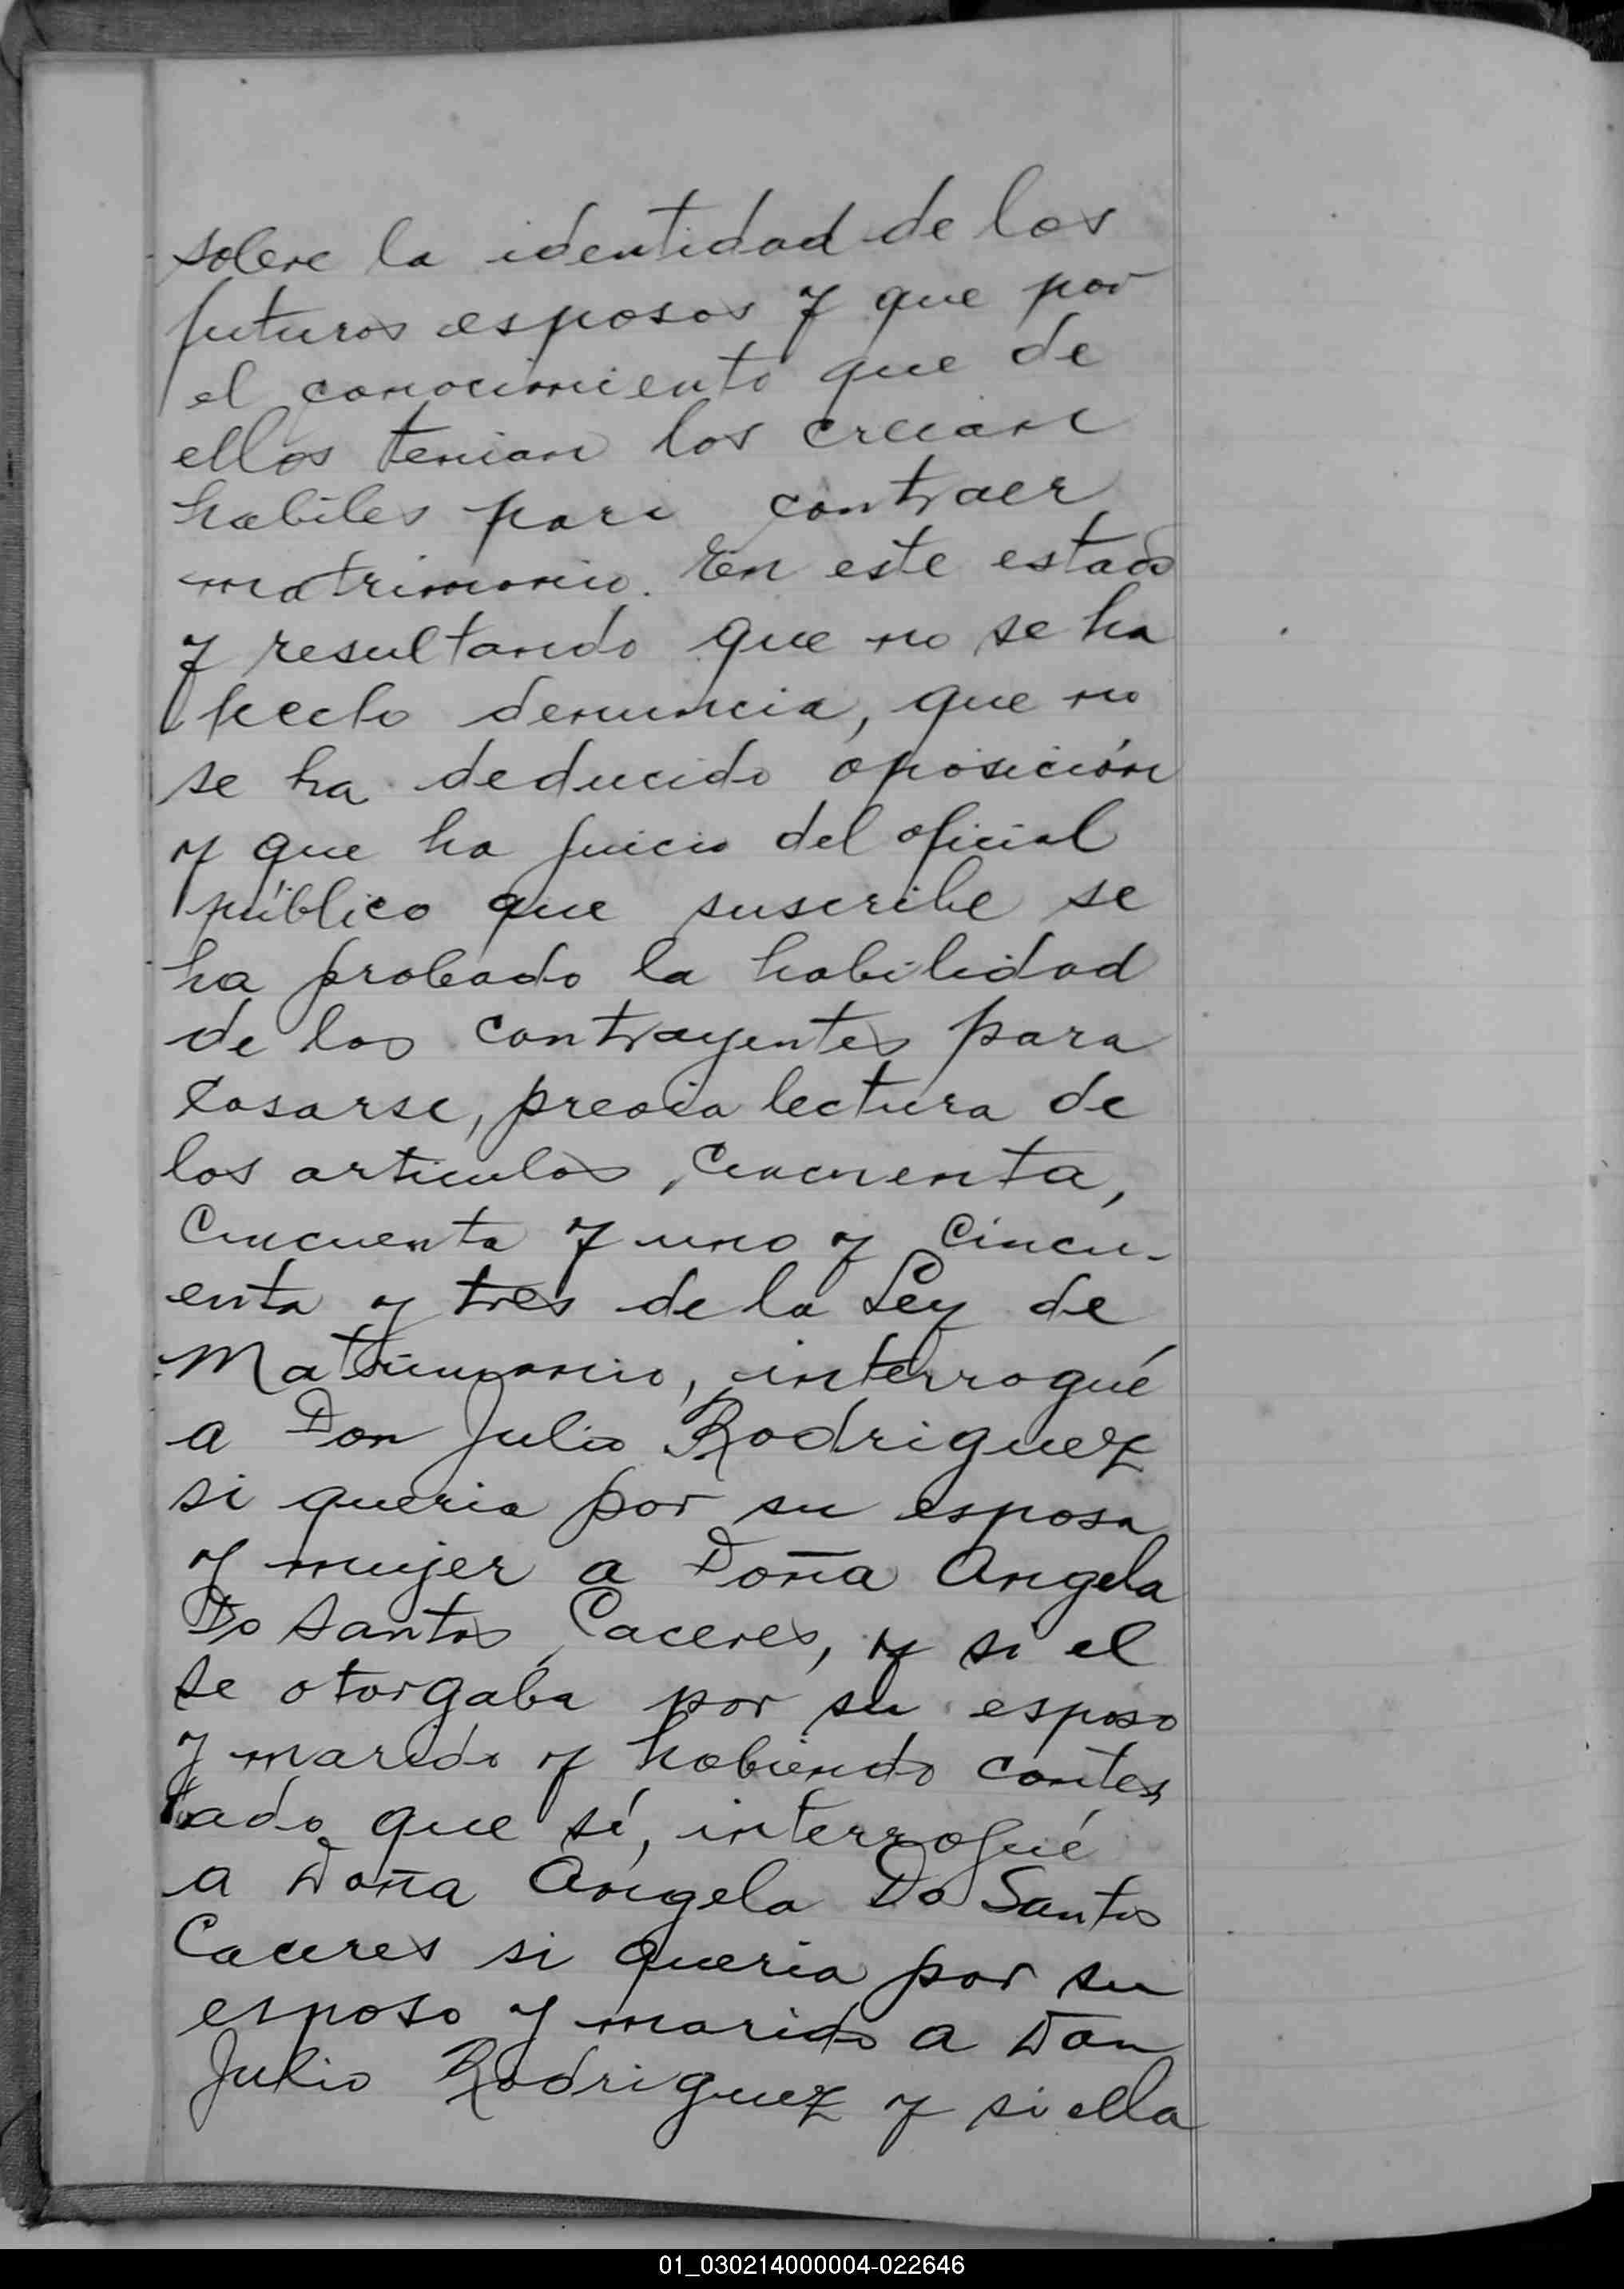 sobre la identidad de los
futuros esposos y que por
el conocimiento que de
ellos tenian los creian
habiles para contraer
matrimonio. En este estado
y resultando que no se ha
hecho denuncia, que no
se ha deducido oposición
y que ha juicio del oficial
público que suscribe se
ha probado la habilidad
de los contrayentes para
casarse, previa lectura de
los articulos, cincuenta,
cincuenta y uno y cincu-
enta y tres de la Ley de
Matrimonio, interrogué
a Don Julio Rodriguez
si queria por su esposa
y mujer a Doña Angela
Do Santos Caceres, y si el
se otorgaba por su esposo
y marido y habiendo contes
tado que sí, interrogué
a Doña Angela Do Santos
Caceres si queria por su
esposo y marido a Don
Julio Rodriguez y si ella
01_030214000004-022646